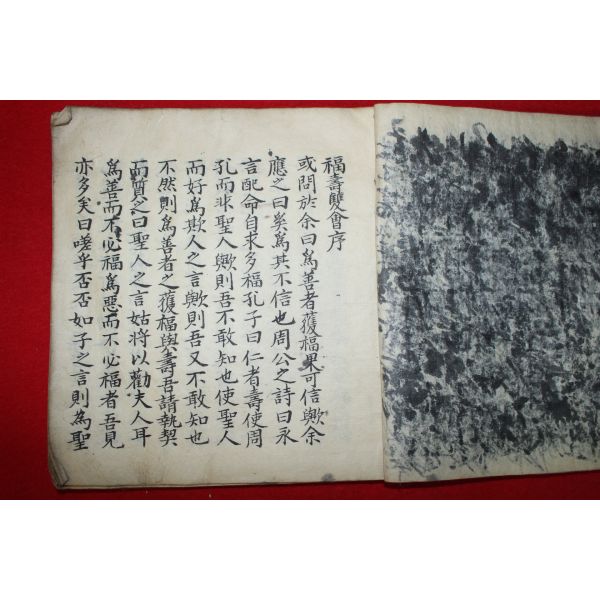 福壽雙會序
或問於余曰爲善者獲福果可信歟余
應之曰奚爲其不信也周公之詩曰永
言配命自求多福孔子曰仁者壽使周
孔而非聖人歟則吾不敢知也使聖人
而好爲欺人之言歟則吾又不敢知也
不然則爲善者之獲福與壽吾請執契
而質之曰聖人之言姑將以勸夫人耳
爲善而不必福爲惡而不必福者吾見
亦多矣曰嗟乎否否如子之言則爲聖